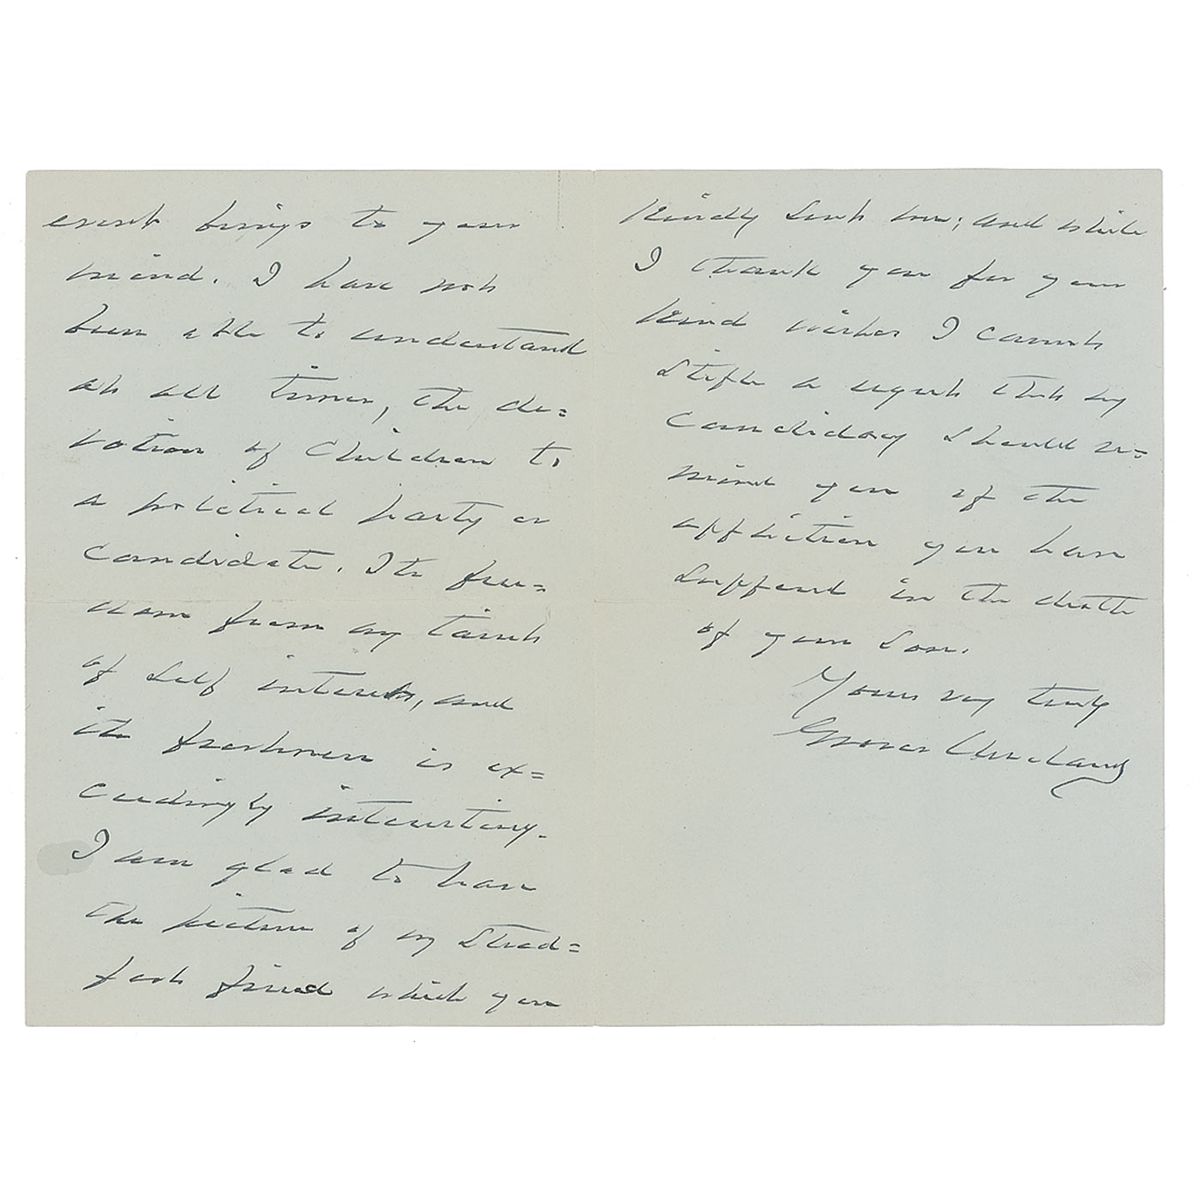 event brings to your
mind. I have not
been able to understand
at all times, the de=
votion of Children to
a political party or
Candidate. Its free=
dom from any taint
of self interest, and
its freshness is ex=
ceedingly interesting.
I am glad to have
the picture of my Stead=
fast friend which you
kindly sent me; and while
I thank you for your
kind wishes I cannot
stifle a regret that my
Candidacy should re=
mind you of the
affliction you have
suffered in the death
of your son.
Yours very truly
Grover Cleveland